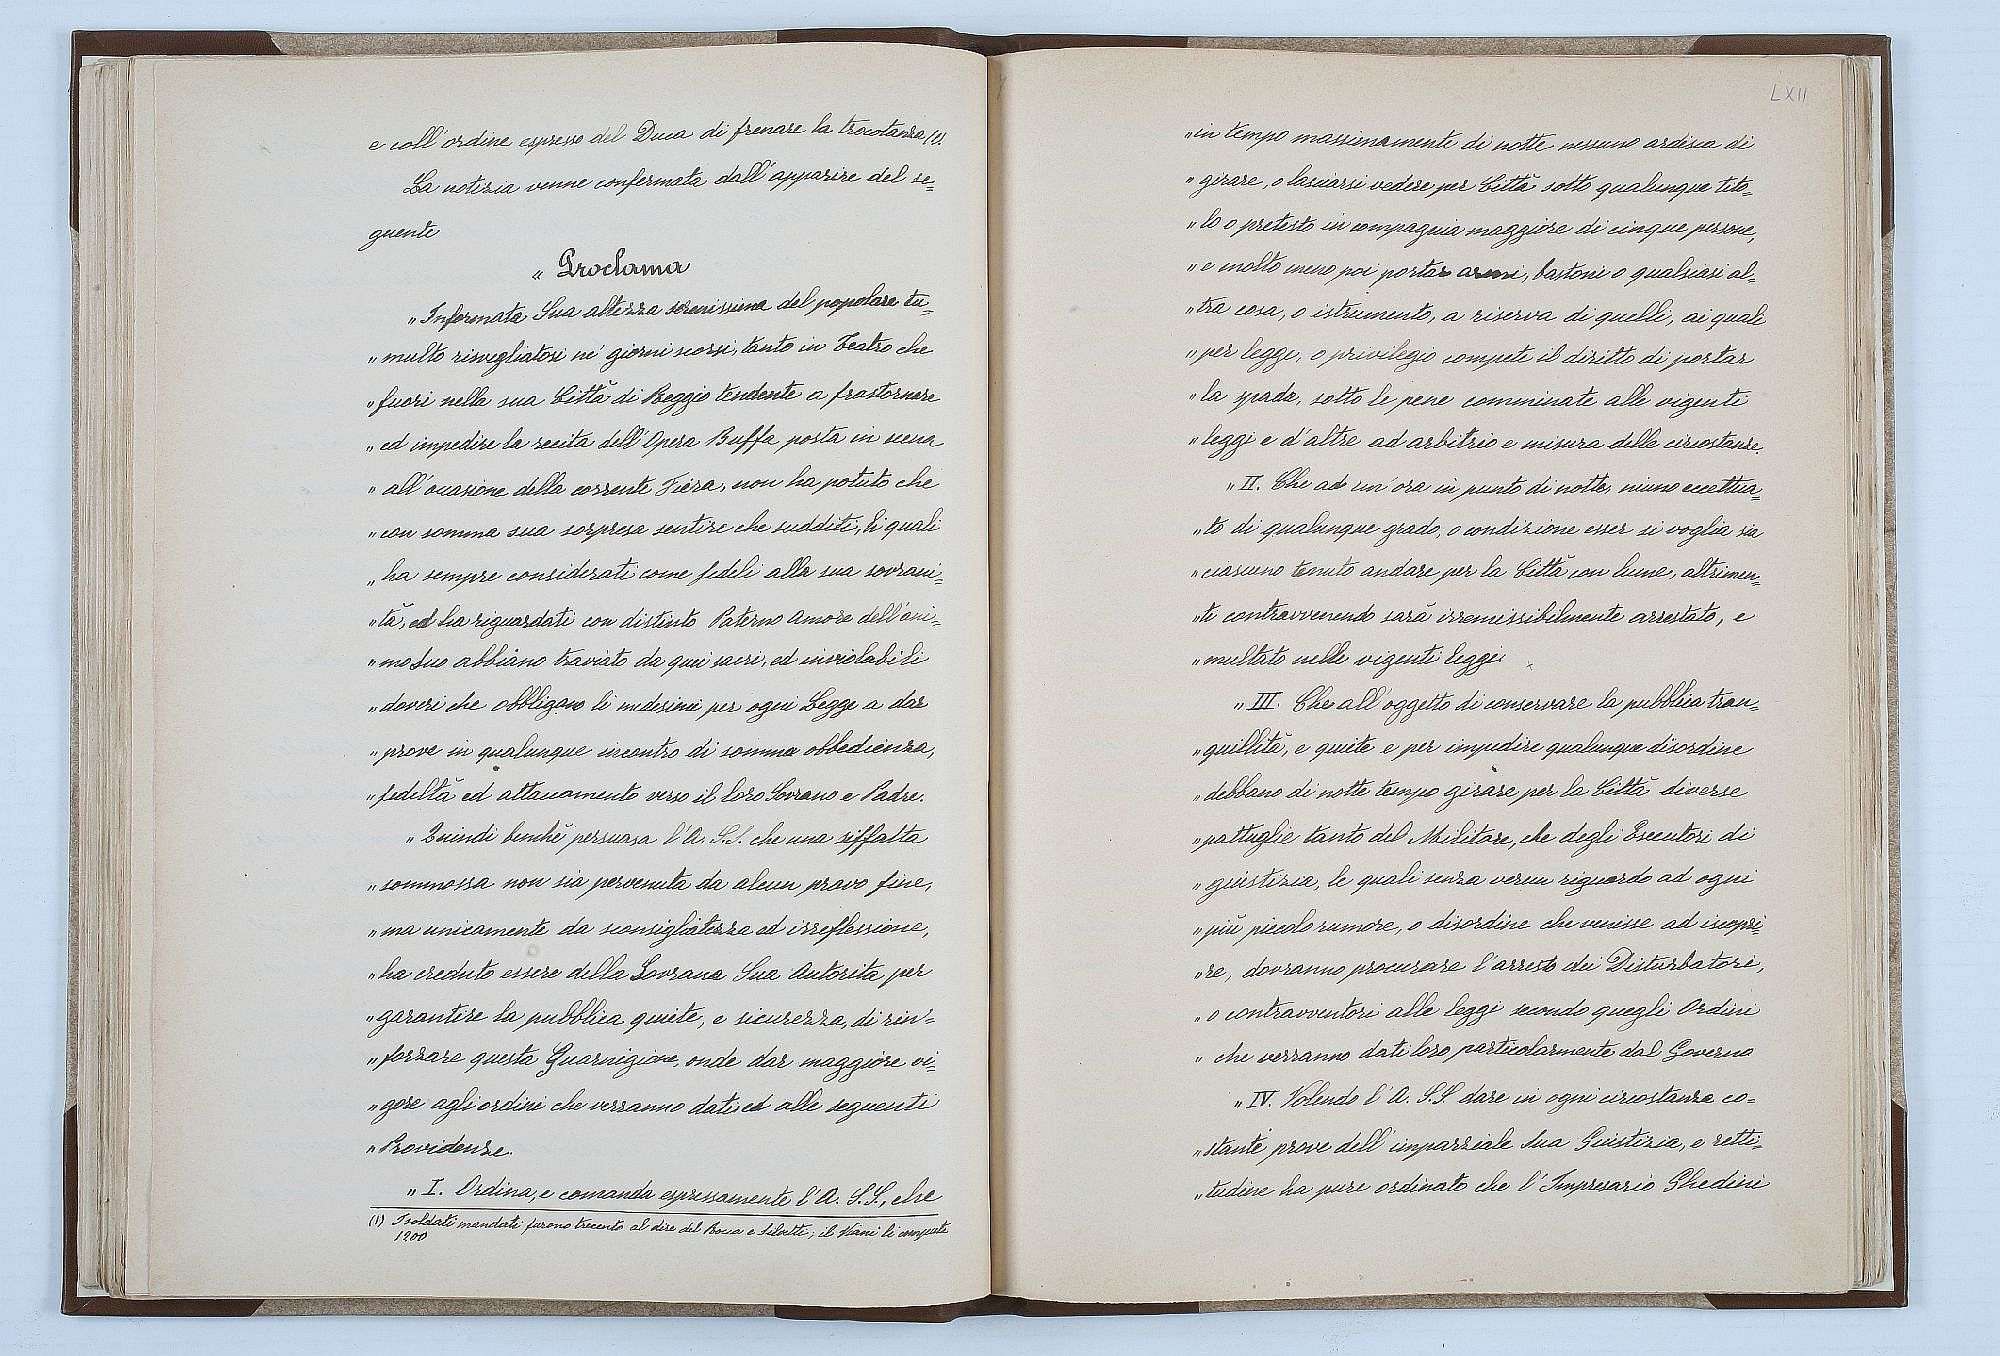 e coll'ordine espresso del Duca di frenare la tracotanza (1).
La notizia venne confermata dall'apparire del se=
guente
„ Proclama
„ Informata Sua altezza serenissima del popolare tu=
„ multo risvegliatosi ne' giorni scorsi, tanto in Teatro che
„ fuori nella sua Città di Reggio tendente a frastornare
„ ed impedire la recita dell'Opera Buffa posta in scena
„ all'occasione della corrente Fiera, non ha potuto che
„ con somma sua sorpresa sentire che sudditi, li quali
„ ha sempre considerati come fedeli alla sua sovrani=
„ tà, ed ha riguardati con distinto Paterno Amore dell'ani=
„ mo Suo abbiano traviato da quei sacri, ed inviolabili
„ doveri che obbligano li medesimi per ogni Legge a dar
„ prove in qualunque incontro di somma obbedienza,
„ fedeltà ed attaccamento verso il loro Sovrano e Padre.
„ Quindi benchè persuasa l'A. S. S. che una siffatta
„ sommossa non sia pervenuta da alcun pravo fine,
„ ma unicamente da sconsigliatezza ed irreflessione,
„ ha creduto essere della Sovrana Sua Autorità per
„ garantire la pubblica quiete, e sicurezza, di rin=
„ forzare questa Guarnigione, onde dar maggiore vi=
„ gore agli ordini che verranno dati ed alle seguenti
„ Providenze.
„ I. Ordina, e comanda espressamente l'A. S. S., che
(1) I soldati mandati furono trecento al dire del Rocca e Silvetti; il Viani li computa
1200
LXII
„ in tempo massimamente di notte nessuno ardisca di
„ girare, o lasciarsi vedere per Città sotto qualunque tito=
„ lo o pretesto in compagnia maggiore di cinque persone,
„ e molto meno poi portar armi, bastoni o qualsiasi al=
„ tra cosa, o istrumento, a riserva di quelli, ai quali
„ per legge, o privilegio compete il diritto di portar
„ la spada, sotto le pene comminate alle vigenti
„ leggi e d'altre ad arbitrio e misura delle circostanze.
„ II. Che ad un'ora in punto di notte, niuno eccettua=
„ to di qualunque grado, o condizione esser si voglia sia
„ ciascuno tenuto andare per la Città con lume, altrimen=
„ ti contravvenendo sarà irremissibilmente arrestato, e
„ multato nelle vigenti leggi.
„ III. Che all'oggetto di conservare la pubblica tran=
„ quillità, e quiete e per impedire qualunque disordine
„ debbano di notte tempo girare per la Città diverse
„ pattuglie tanto del Militare, che degli Esecutori di
„ giustizia, le quali senza verun riguardo ad ogni
„ più piccolo rumore, o disordine che venisse ad iscopri=
„ re, dovranno procurare l'arresto dei Disturbatori,
„ o contravventori alle leggi secondo quegli Ordini
„ che verranno dati loro particolarmente dal Governo
„ IV. Volendo l'A. S. S dare in ogni circostanza co=
„ stante prove dell'imparziale Sua Giustizia, e retti=
„ tudine ha pure ordinato che l'Impresario Ghedini